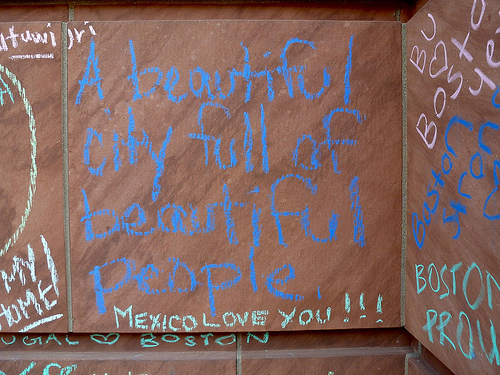 A beautiful
city full of
beautiful
people.
MEXICO LOVE YOU !!!
MY
HOME!
UGAL ♡ BOSTON
BOSTON
PROU